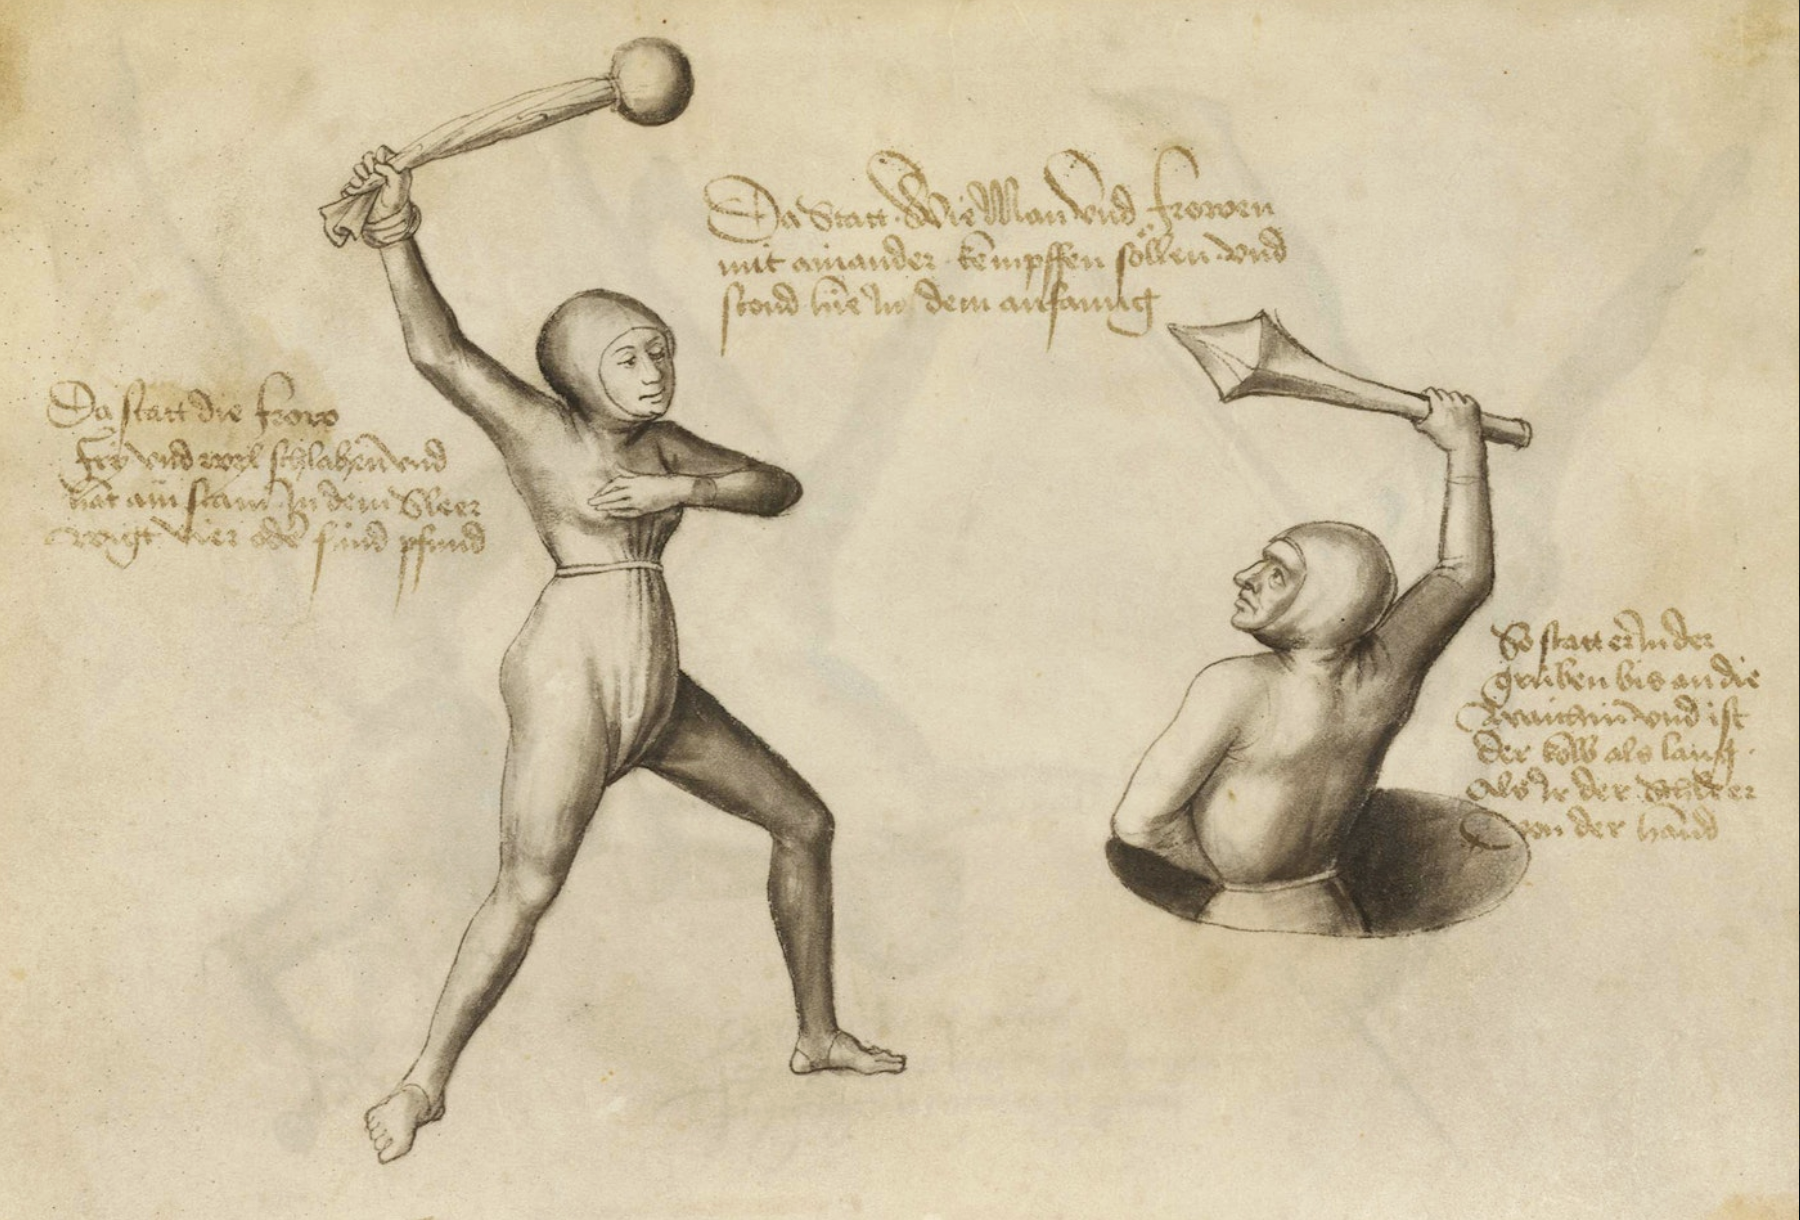 Da Statt Wie Man vnd frowen
mit ainander kempffen söllen vnd
stond hie In dem anfanng
Da statt die frow
fry vnd wyl schlahen vnd
hat ain stain In dem Sleer
wigt vier oder fünd pfund
So statt er In der
gruben bis an die
waichin vnd ist
der kolb als lang
Als Ir der Schleer
von der hand